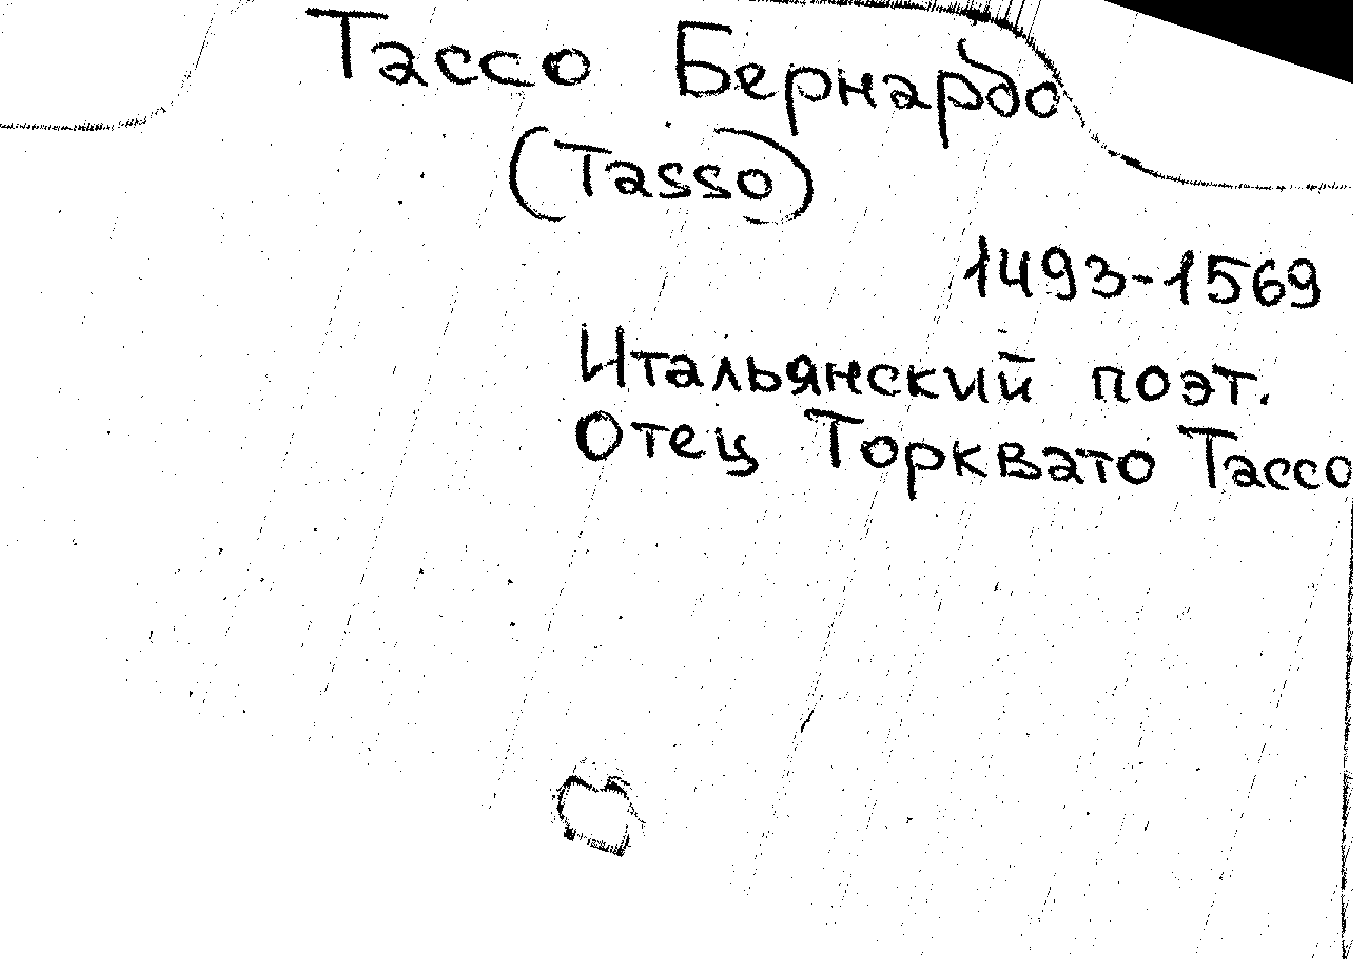 Тассо Бернардо
(Tasso)
1493-1569
Итальянский поэт.
Отец Торквато Тассо